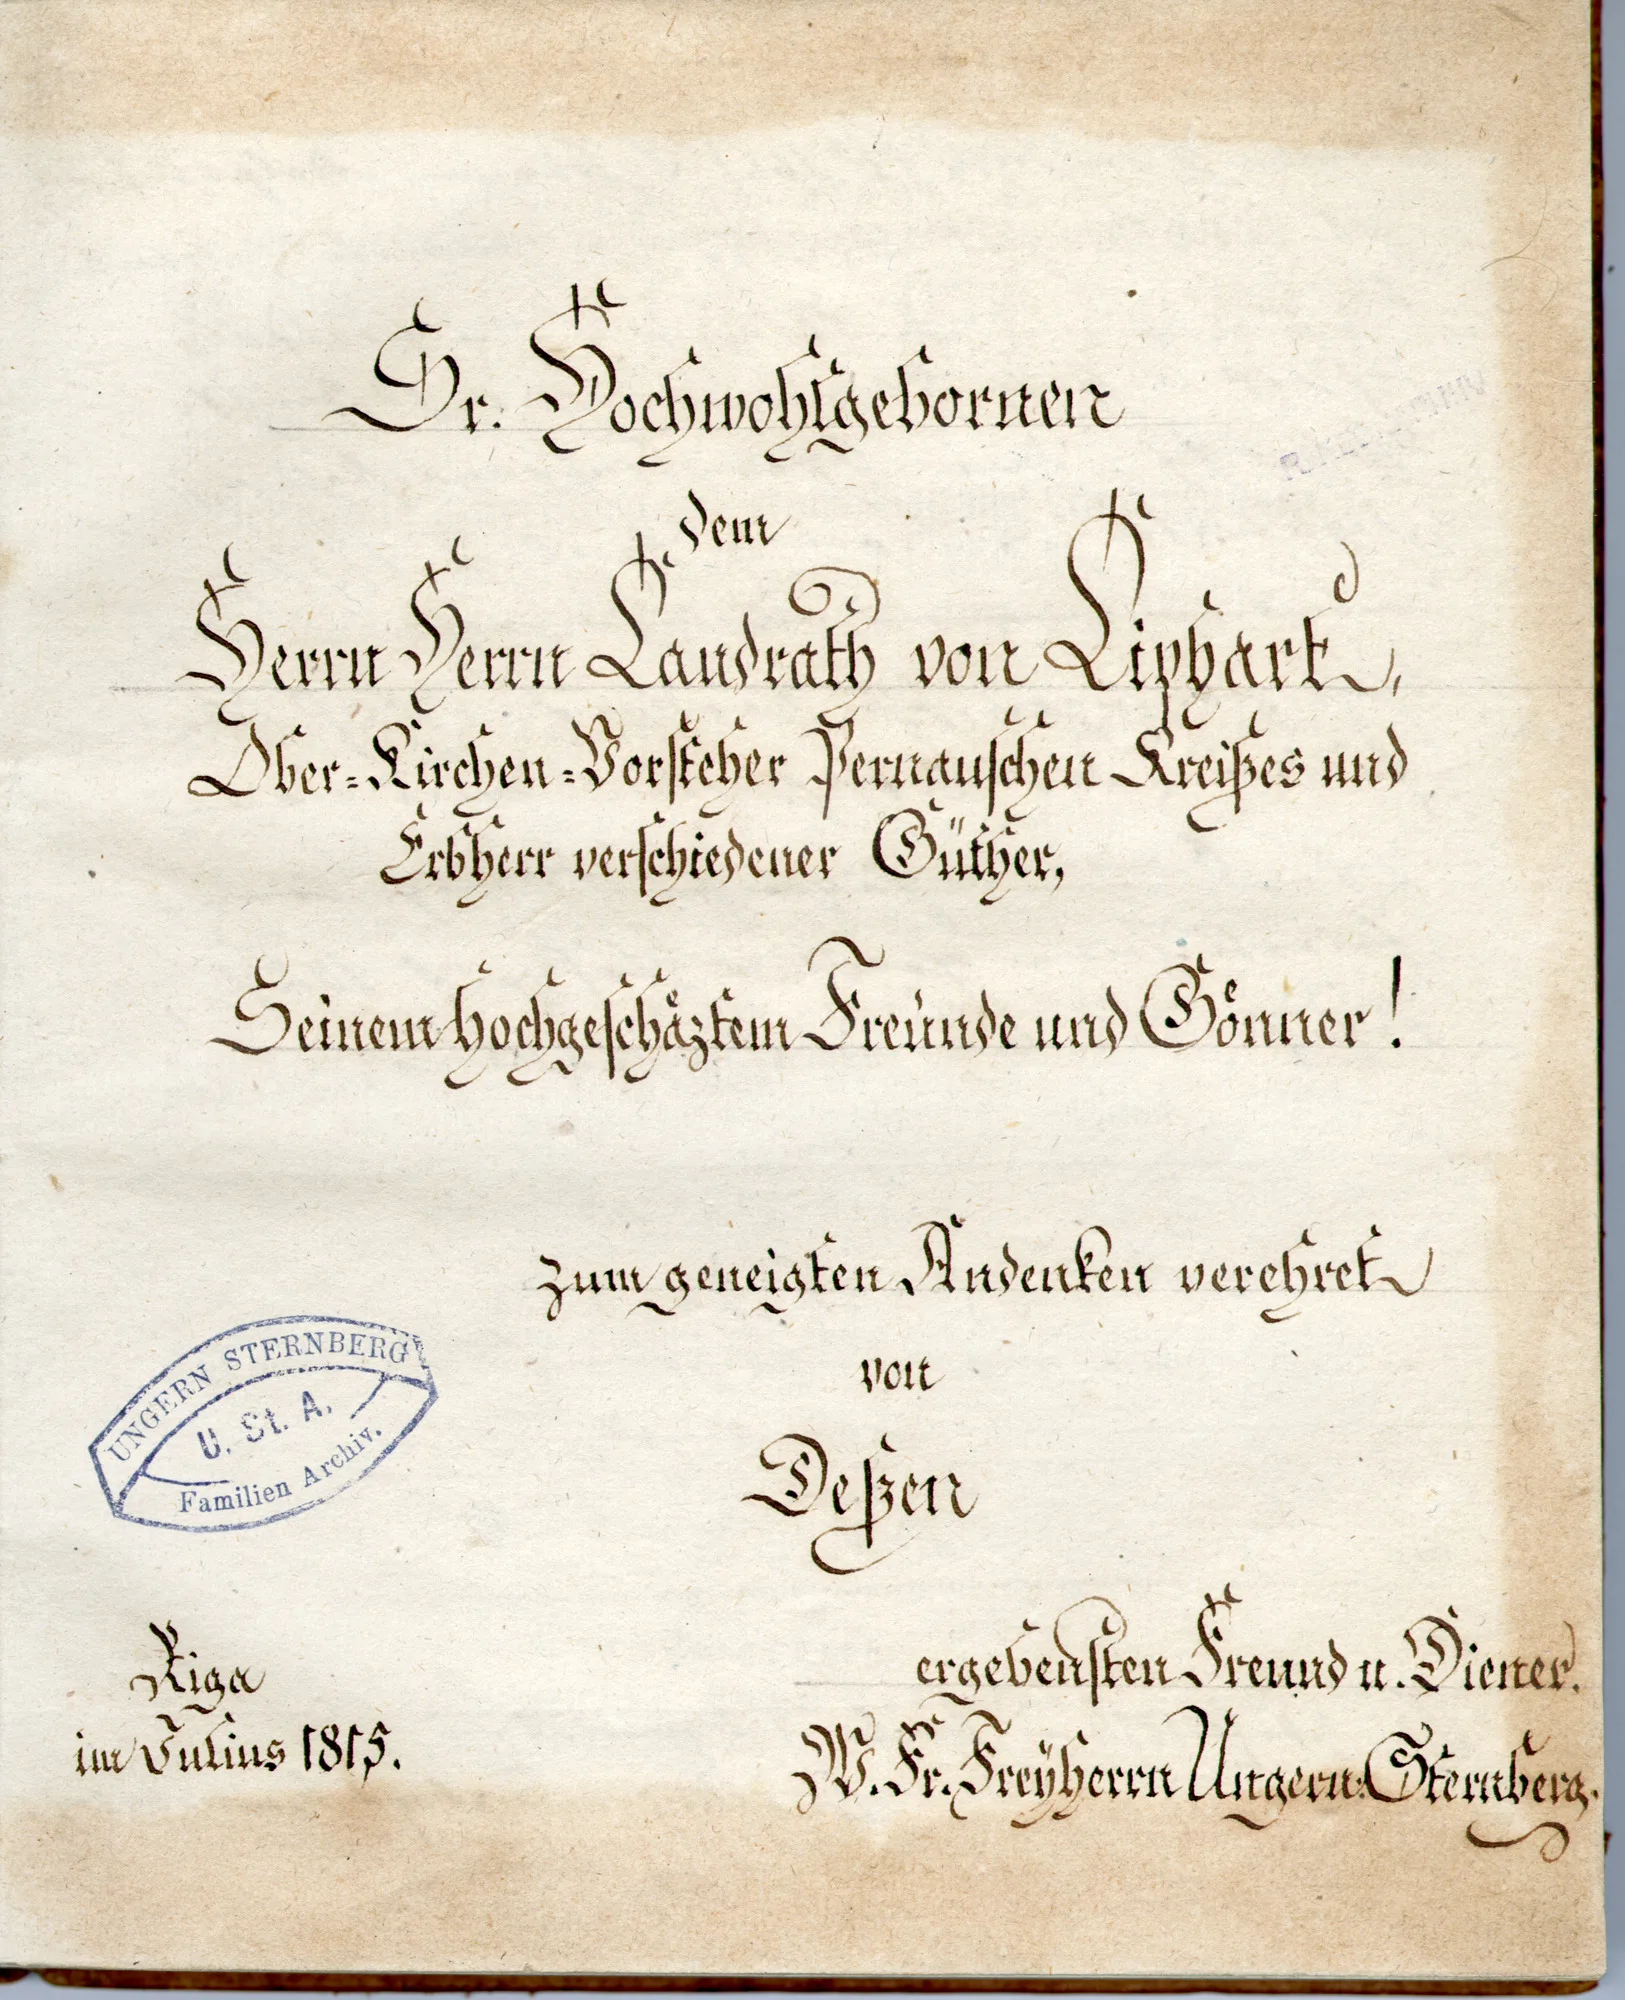 Sr. Hochwohlgebornen
dem
Herrn Herrn Landrath von Liphart,
Ober-Kirchen-Vorsteher Pernauschen Kreißes und
Erbherr verschiedener Güther,
Seinem hochgeschäztem Freunde und Gönner!
zum geneigten Andenken verehret
von
Deßen
ergebensten Freund u. Diener.
W. Fr. Freyherrn Ungern-Sternberg.
Riga
im Julius 1815.
UNGERN STERNBERG
U. St. A.
Familien Archiv.